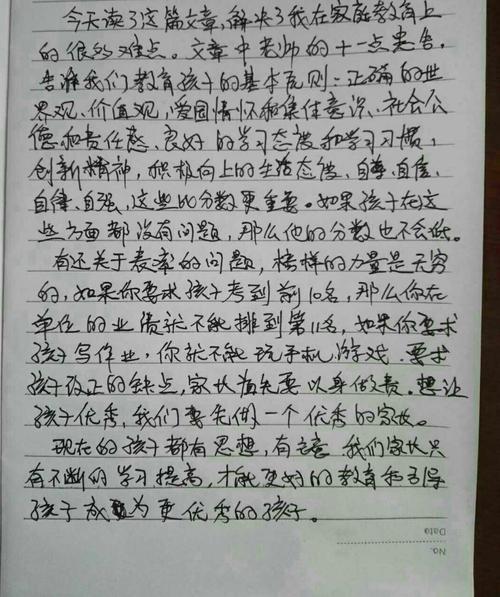 今天读了这篇文章,解决了我在家庭教育上
的很多难点。文章中老师的十一点忠告,
告诉我们教育孩子的基本原则:正确的世
界观、价值观,爱国情怀和集体意识、社会公
德和责任感、良好的学习态度和学习习惯,
创新精神,积极向上的生活态度、自尊、自信、
自律、自强,这些比分数更重要。如果孩子在这
些方面都没有问题,那么他的分数也不会低。
有还关于表率的问题,榜样的力量是无穷
的,如果你要求孩子考到前10名,那么你在
单位的业绩就不能排到第11名,如果你要求
孩子写作业,你就不能玩手机游戏.要求
孩子改正的缺点,家长首先要以身做责.想让
孩子优秀,我们要先做一个优秀的家长。
现在的孩子都有思想,有 我们家长只
有不断的学习提高,才能更好的教育和引导
孩子成为更优秀的孩子。
Date
No.